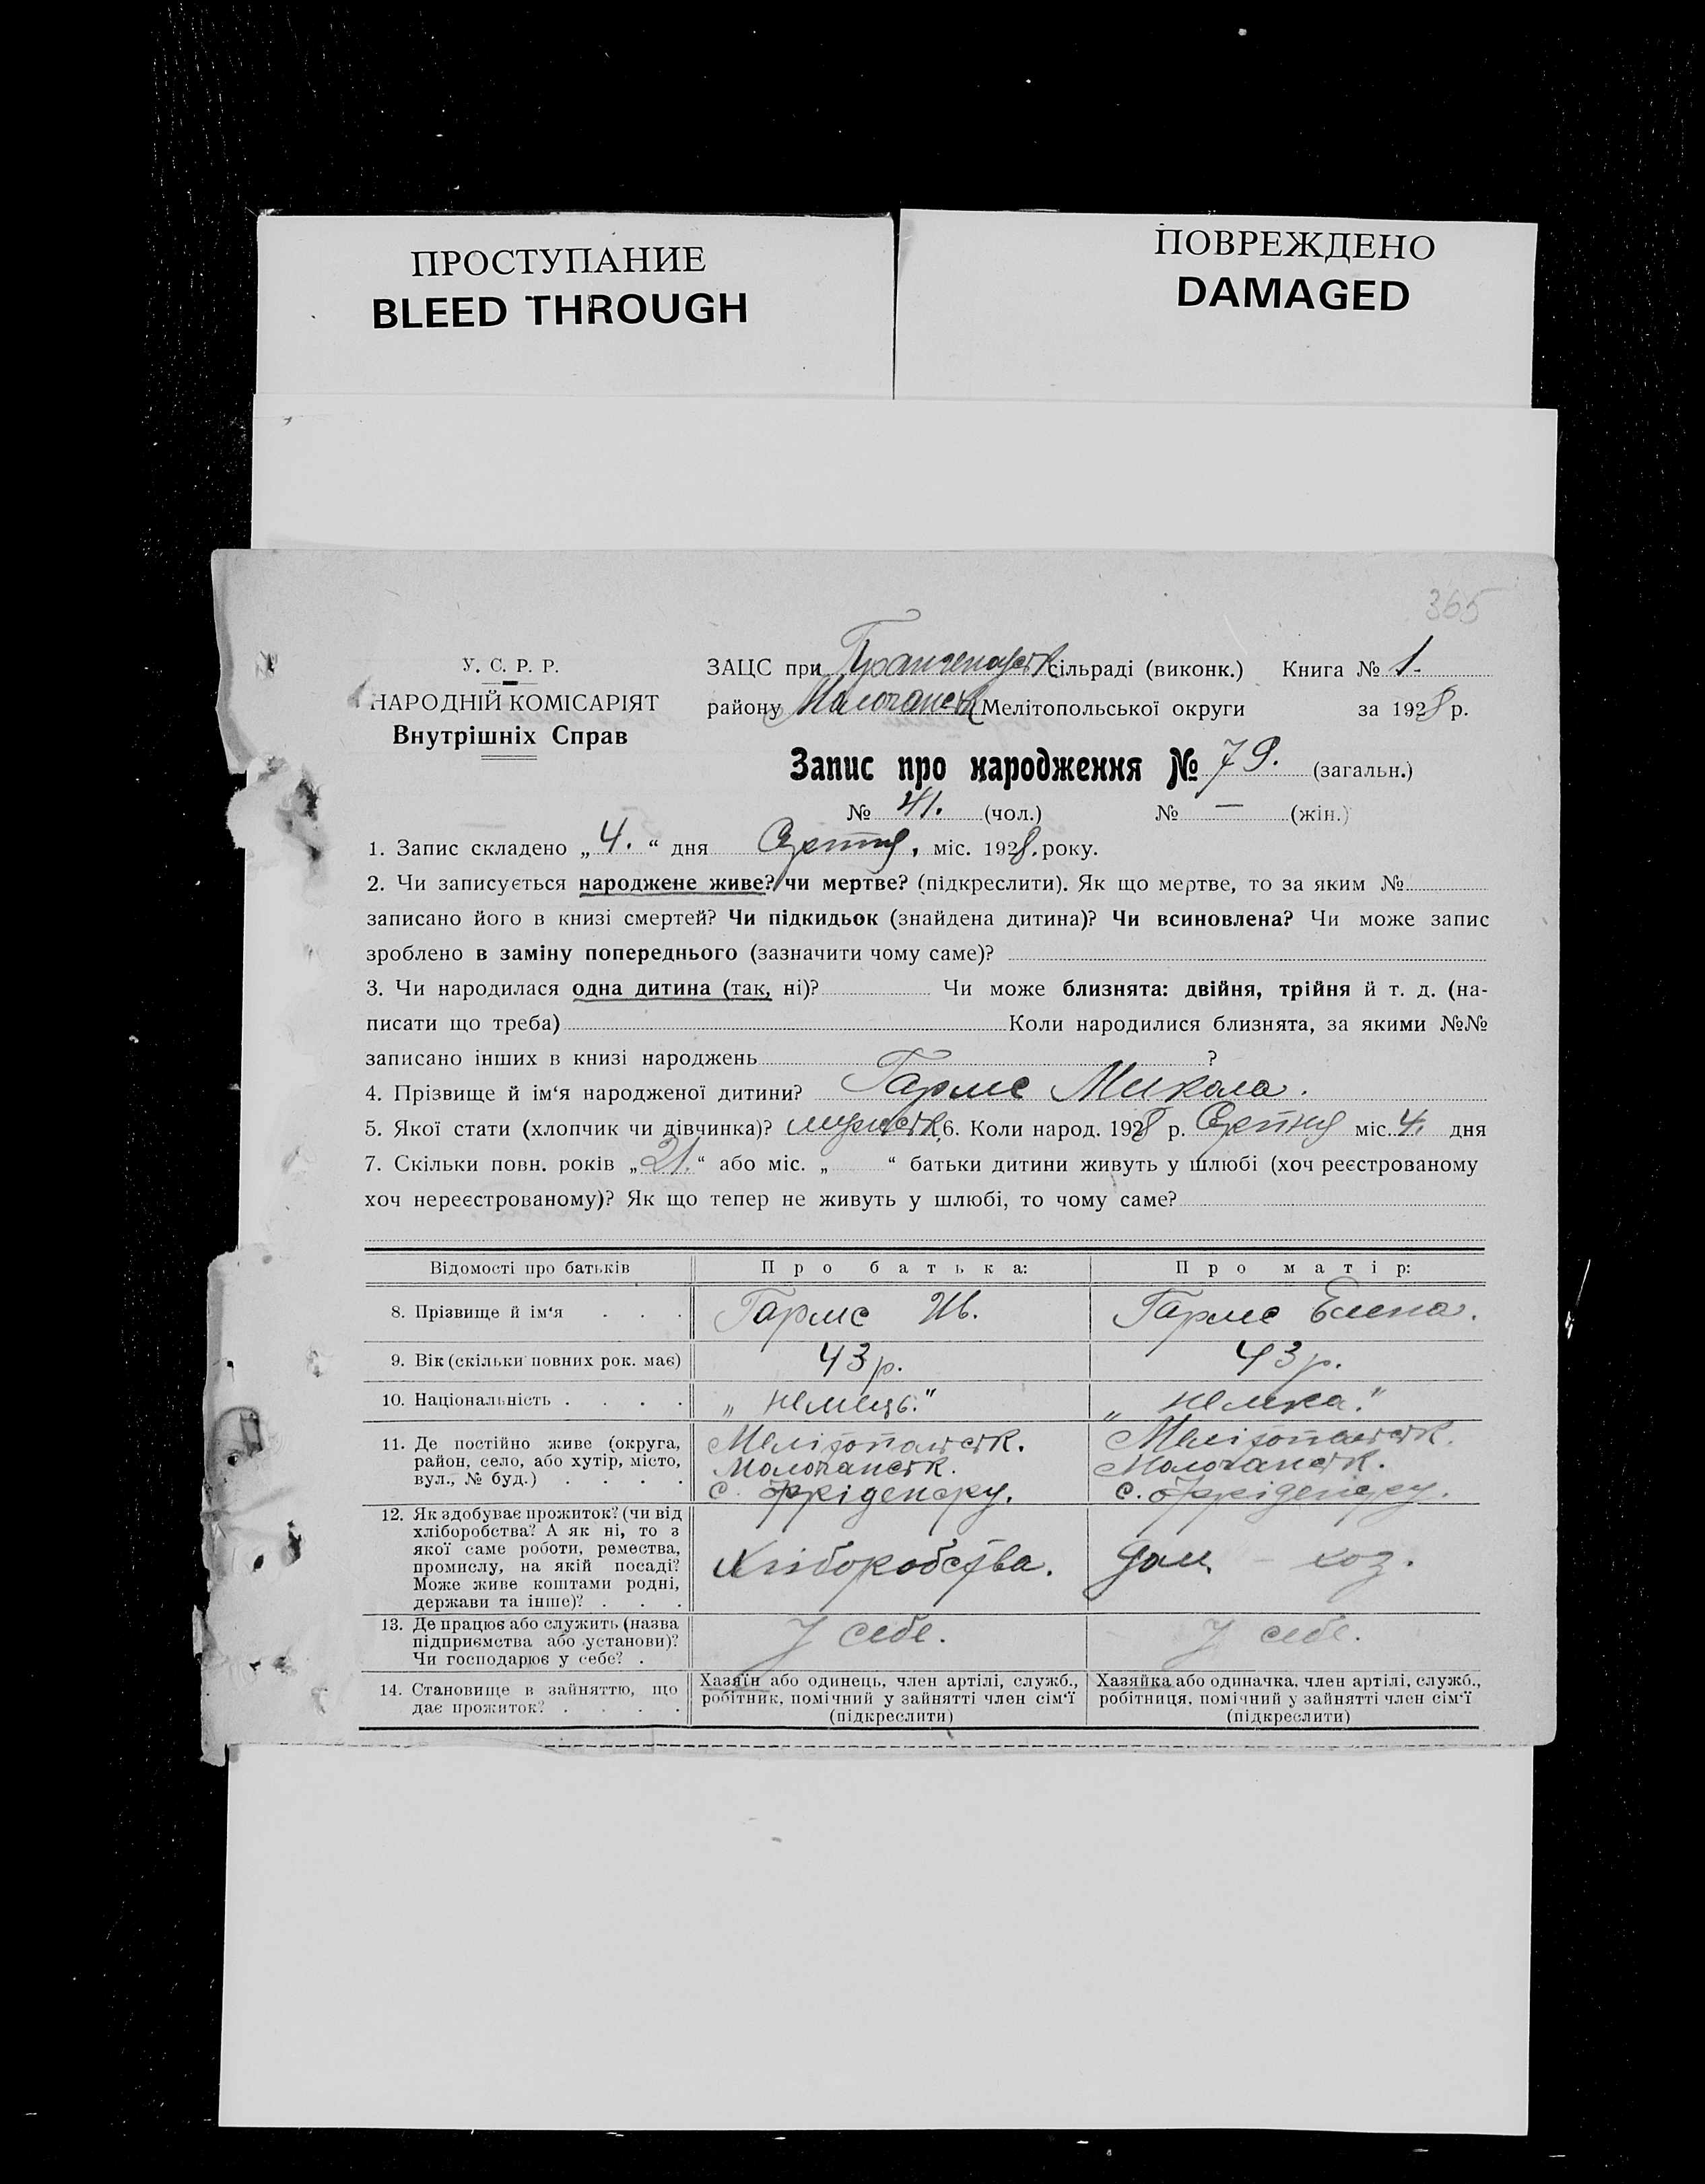 ПРОСТУПАНИЕ
BLEED THROUGH
ПОВРЕЖДЕНО
DAMAGED
365
У. С. Р. Р.
НАРОДНІЙ КОМІСАРІЯТ
Внутрішніх Справ
ЗАЦС при сільраді (виконк.) Книга № 1-
району Молочанськ Мелітопольської округи за 1928 р.
Запис про народження № 79. (загальн.)
№ 41. (чол.) № — (жін.)
1. Запис складено „ 4. “ дня Серпня, міс. 1928. року.
2. Чи записується народжене живе? чи мертве? (підкреслити). Як що мертве, то за яким №
записано його в книзі смертей? Чи підкидьок (знайдена дитина)? Чи всиновлена? Чи може запис
зроблено в заміну попереднього (зазначити чому саме)?
3. Чи народилася одна дитина (так, ні)? Чи може близнята: двійня, трійня й т. д. (на-
писати що треба) Коли народилися близнята, за якими №№
записано інших в книзі народжень ?
4. Прізвище й ім‘я народженої дитини? Гармс Микола.
5. Якої стати (хлопчик чи дівчинка)? 6. Коли народ. 1928 р. Серпня міс. 4. дня
7. Скільки повн. років „ 21. “ або міс. „ “ батьки дитини живуть у шлюбі (хоч реєстрованому
хоч нереєстрованому)? Як що тепер не живуть у шлюбі, то чому саме?
Відомості про батьків Про батька: Про матір:
8. Прізвище й ім‘я . . . Гармс Ив. Гармс Елена.
9. Вік (скільки повних рок. має) 43 р. 43 р.
10. Національність . . . . „ немець.“ „ немка.“
11. Де постійно живе (округа,
район, село, або хутір, місто,
вул., № буд.) . . . .
Мелітопольськ.
Молочанськ.
с. Фріденсру.
Мелітопольськ.
Молочанськ.
с. Фріденсру.
12. Як здобуває прожиток? (чи від
хліборобства? А як ні, то з
якої саме роботи, ремества,
промислу, на якій посаді?
Може живе коштами родні,
держави та інше)? . . .
Хліборобства. Дом - хоз.
13. Де працює або служить (назва
підприємства або установи)?
Чи господарює у себе? .
У себе. У себе.
14. Становище в зайняттю, що
дає прожиток? . . . .
Хазяїн або одинець, член артілі, служб.,
робітник, помічний у зайнятті член сім‘ї
(підкреслити)
Хазяйка або одиначка, член артілі, служб.,
робітниця, помічний у зайнятті член сім‘ї
(підкреслити)